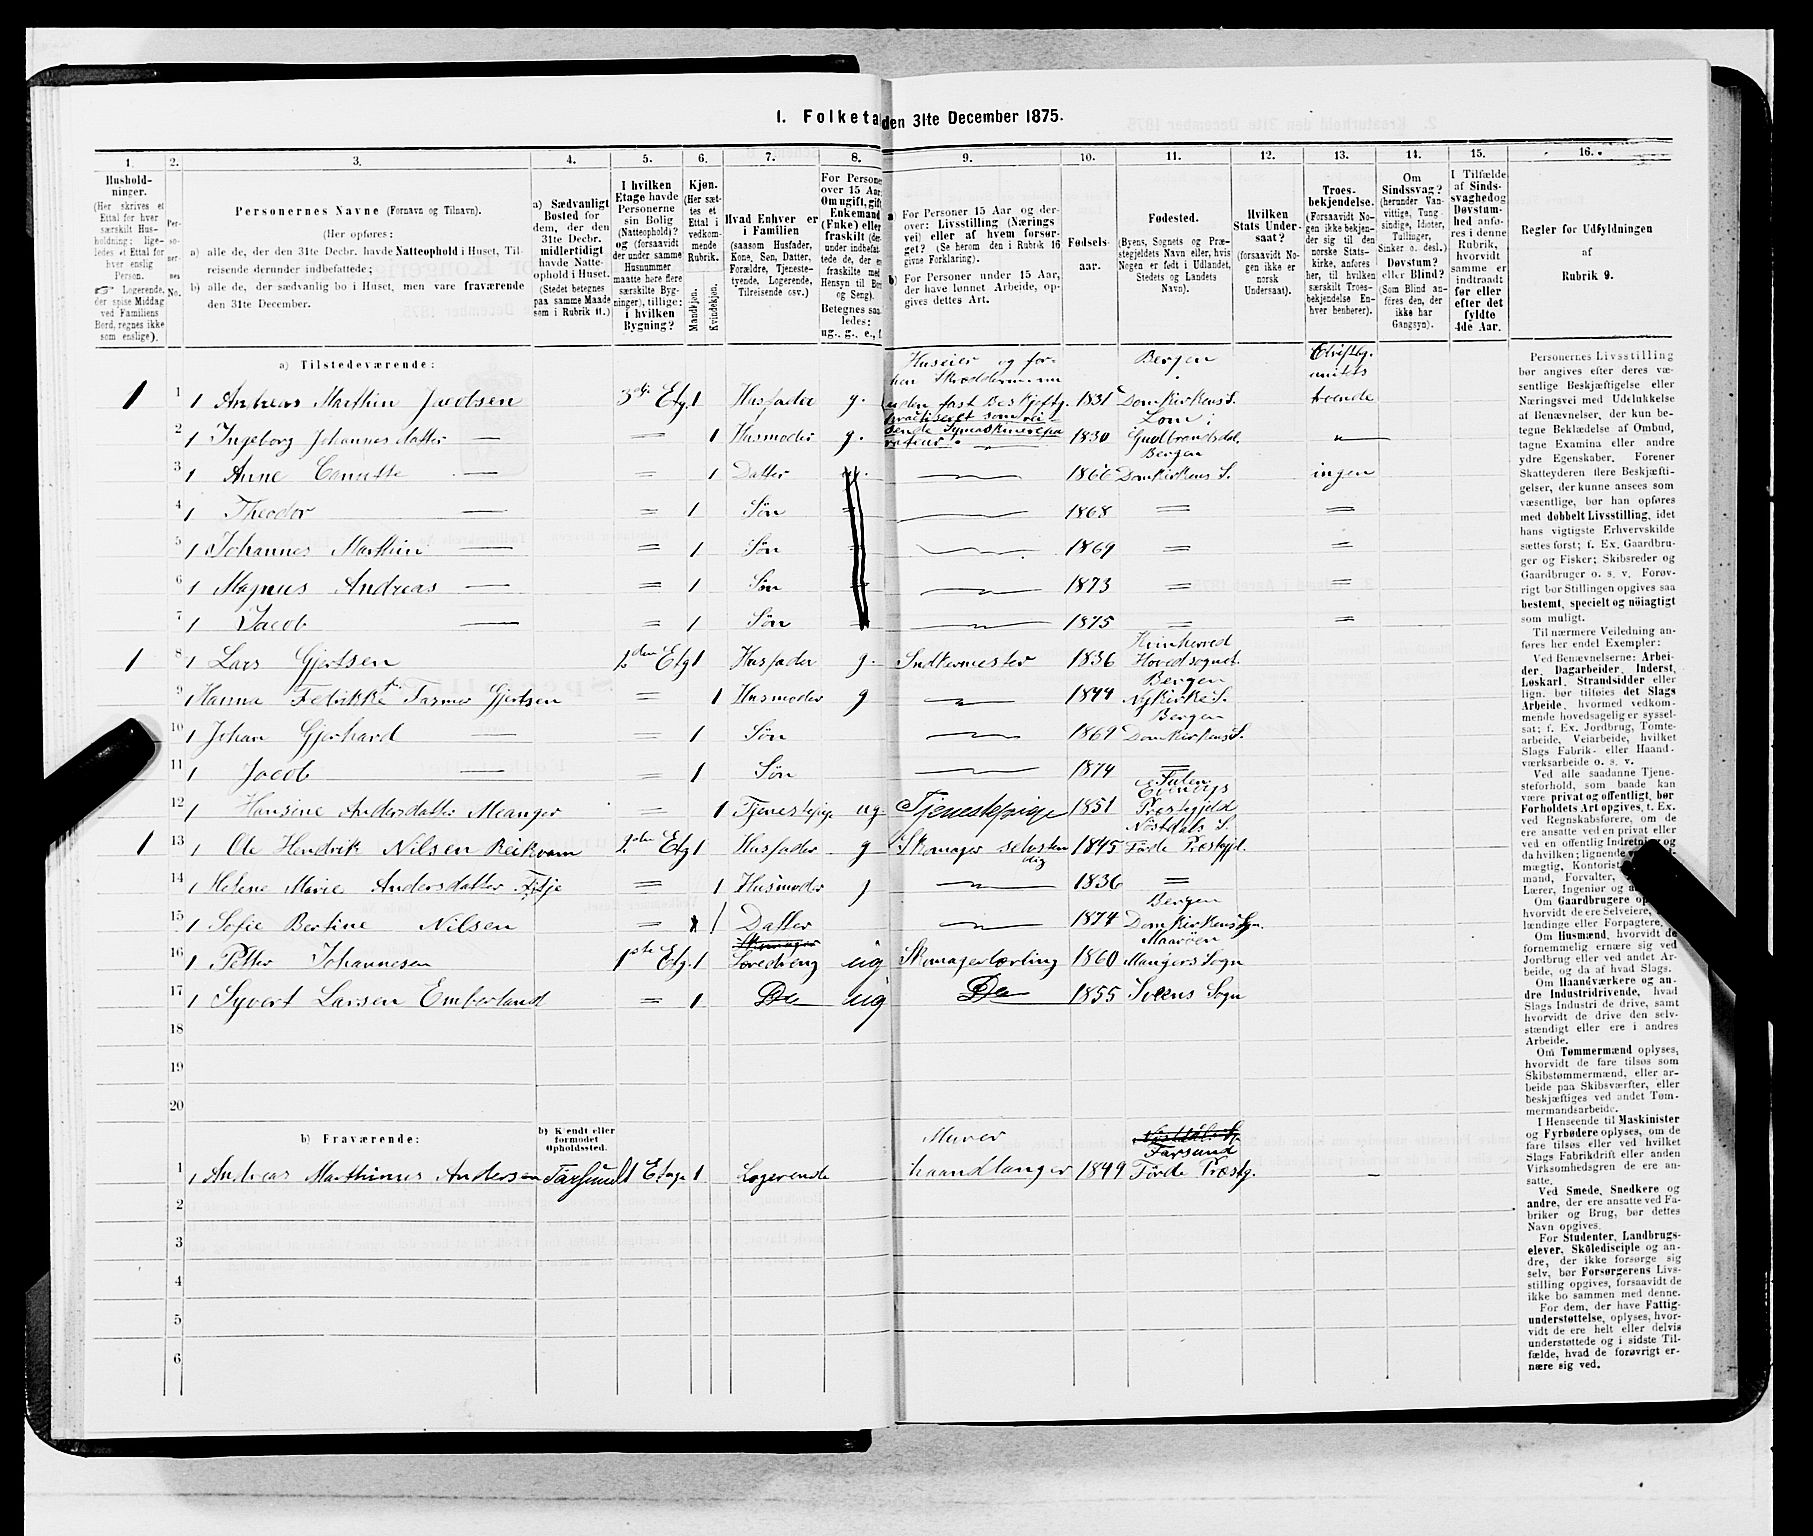 1. Folketa den 31te December 1875.
1. 2. 3. 4. 5. 6. 7. 8. 9. 10. 11. 12. 13. 14. 15. 16.
Hushold-
ninger.
(Her skrives et
Ettal for hver
særskilt Hus-
holdning; lige-
ledes et Ettal for
hver enslig
Person.
☞ Logerende,
der spise Middag
ved Familiens
Bord, regnes ikke
som enslige).
Per-
so-
ner-
nes
No.
Personernes Navne (Fornavn og Tilnavn).
(Her opføres:
a) alle de, der den 31te Decbr. havde Natteophold i Huset, Til-
reisende derunder indbefattede;
b) alle de, der sædvanlig bo i Huset, men vare fraværende
den 31te December.
a) Sædvanligt
Bosted for
dem, der den
31te Decbr.
midlertidigt
havde Natte-
ophold i Huset.
(Stedet betegnes
paa samme Maade
som i Rubrik 11.)
I hvilken
Etage havde
Personerne
sin Bolig
(Natteophold)?
og (forsaavidt
der under samme
Husnummer
maatte høre flere
særskilte Byg-
ninger), tillige:
i hvilken
Bygning?
Kjøn.
(Her sæt-
tes et
Ettal i
vedkom-
mende
Rubrik.
Mandkjøn.
Kvindekjøn.
Hvad Enhver er
i Familien
(saasom Husfader,
Kone, Søn, Datter,
Forældre, Tjeneste-
tyende, Logerende,
Tilreisende osv.)
For Persone
over 15 Aar
Om ugift, gift
Enkemand
(Enke) eller
fraskilt (der-
under indbefat-
tede de, der e
fraskilte med
Hensyn til Bo
og Seng).
Betegnes saa-
ledes:
ug., g., e., f.
a) For Personer 15 Aar og der-
over: Livsstilling (Nærings
vei) eller af hvem forsør-
get? (Se herom den i Rubrik 16
givne Forklaring).
b) For Personer under 15 Aar,
der have lønnet Arbeide, op-
gives dettes Art.
Fødsels-
aar.
Fødested.
(Byens, Sognets og Præ-
stegjeldets Navn eller, hvis
Nogen er født i Udlandet,
Stedets og Landets
Navn).
Hvilken
Stats Under-
saat?
(forsaavidt No-
gen ikke er
norsk
Undersaat).
Troes-
bekjendelse.
(Forsaavidt No-
gen ikke bekjen-
der sig til den
norske Stats-
kirke, anføres
her, til hvilken
særskilt Troes-
bekjendelse En-
hver henhører).
Om
Sindssvag?
(herunder Van-
vittige, Tung
sindige, Idioter,
Tullinger,
Sinker o. desl.)
Døvstum?
eller Blind?
(Som Blind an-
føres den, der
ikke har
Gangsyn).
I Tilfælde
af Sinds-
svaghed og
Døvstum-
hed anfø-
res i denne
Rubrik,
hvorvidt
samme er
indtraadt
før eller
efter det
fyldte
4de Aar.
Regler for Udfyldningen
af
Rubrik 9.
a) Tilstedeværende:
Huseier og for-
hen Skræddermann
uden fast Beskjeftg.
Bergen
troende
1 1 1 Andreas Marthin Jacobsen 3die Etg. 1 Husfader g. 1831 Domkirkens S.
2 1 Ingeborg Johannesdatter — = 1 Husmoder g. 1830 Lom i Gudbrandsdal
3 1 Anne — = 1 Datter 1866 Bergen Domkirkens S. ingen
4 1 Theodor — = 1 Søn 1868 = =
5 1 Johannes Marthin — = 1 Søn 1869 = =
6 1 Magnus Andreas — = 1 Søn 1873 = =
7 1 Jacob — = 1 Søn 1875 = =
1 8 1 Lars Gjertsen 2den Etg 1 Husfader g. 1836 Hovedsognet
9 1 Hanna Gjertsen = 1 Husmoder g 1844 Bergen Nykirke S.
10 1 Johan Gjerhard — = 1 Søn 1869 Bergen Domkirkens S.
11 1 Jacob — = 1 Søn 1874 =
12 1 Hansine Andersdatter Meanger = 1 Tjenestepige ug. Tjenestepige 1851 Præstegjeld
1 13 1 Ole Hendrik Nilsen Reikvam 2den Etg 1 Husfader g Skomager selvstendig 1845 Nøstdals S. Førde Præstgjd.
14 1 Helene Marie Andersdatter = 1 Husmoder 1836 =
15 1 Sofie Bertine Nilsen = 1 Datter 1874 Bergen Domkirkens Sgn.
16 1 Petter Johannesen 1ste Etg. 1 ug Skomagerlærling 1860 Mangers Sogn
17 1 Syvert Larsen Emberland = 1 Do ug Do 1855 Sogn
18
19
20
b) Fraværende:
b) Kjendt eller
formodet
Opholdssted.
1 1 Andreas Marthinus Andersen Farsund 1 Etage 1 Logerende Murer haandlanger 1849 Førde Præstg. —
2
3
4
5
6
Personernes Livsstilling
bør angives efter deres væ-
sentlige Beskjæftigelse eller
Næringsvei med Udelukkelse
af Benævnelser, der kun be-
tegne Beklædelse af Ombud,
tagne Examina eller andre
ydre Egenskaber. Forener
Skatteyderen flere Beskjæfti-
gelser, der kunne ansees som
væsentlige, bør han opføres
med dobbelt Livsstilling, idet
hans vigtigste Erhvervskilde
sættes først; f. Ex. Gaardbru-
ger og Fisker; Skibsreder og
Gaardbruger o. s. v. Forøv-
rigt bør Stillingen opgives saa
bestemt, specielt og nöiagtigt
som muligt.
Til nærmere Veiledning an-
føres her endel Exempler:
Ved Benævnelserne: Arbei-
der, Dagarbeider, Inderst,
Løskarl, Strandsidder eller
lign. bør tilføies det Slags
Arbeide, hvormed vedkom-
mende hovedsagelig er syssel-
sat; f. Ex. Jordbrug, Tomte-
arbeide, Veiarbeide, hvilket
Slags Fabrik- eller Haand-
værksarbeide o. s. v.
Ved alle saadanne Tjene-
steforhold, som baade kan
være privat og offentligt, bør
Forholdets Art opgives, t. Ex.
ved Regnskabsførere, om de
ere ansatte ved en privat eller
ved en offentlig Indretning og
da hvilken; lignende
mægtig, Kontorist
mand, Forvalter,
Lærer, Ingeniør og
Om Gaardbrugere op
hvorvidt de ere Selveiere,
lændinge eller Forpagtere,
Om Husmænd, hvorvidt de
fornemmelig ernære sig ved
Jordbrug eller ved andet Ar-
beide, og da af hvad Slags.
Om Haandværkere og an-
dre Industridrivende, hvad
Slags Industri de drive, samt
hvorvidt de drive den selv-
stændigt eller ere i andres
Arbeide.
Om Tømmermænd oplyses,
hvorvidt de fare tilsøs som
Skibstømmermænd, eller ar-
beide paa Skibsværfter, eller
beskjæftiges ved andet Tøm-
mermandsarbeide.
I Henseende til Maskinister
og Fyrbødere oplyses, om de
fare tilsøs eller ved hvilket
Slags Fabrikdrift eller anden
Virksomhedsgren de ere an-
satte.
Ved Smede, Snedkere og
andre, der ere ansatte ved Fa-
briker og Brug, bør dettes
Navn opgives.
For Studenter, Landbrugs-
elever, Skoledisciple og an-
dre, der ikke forsørge sig
selv, bør Forsørgerens Livs-
stilling opgives, forsaavidt de
ikke bo sammen med denne.
For dem, der have Fattig-
understøttelse, oplyses, hvor-
vidt de ere helt eller delvis
understøttede og i sidste Til-
fælde, hvad de forøvrigt er-
nære sig ved.